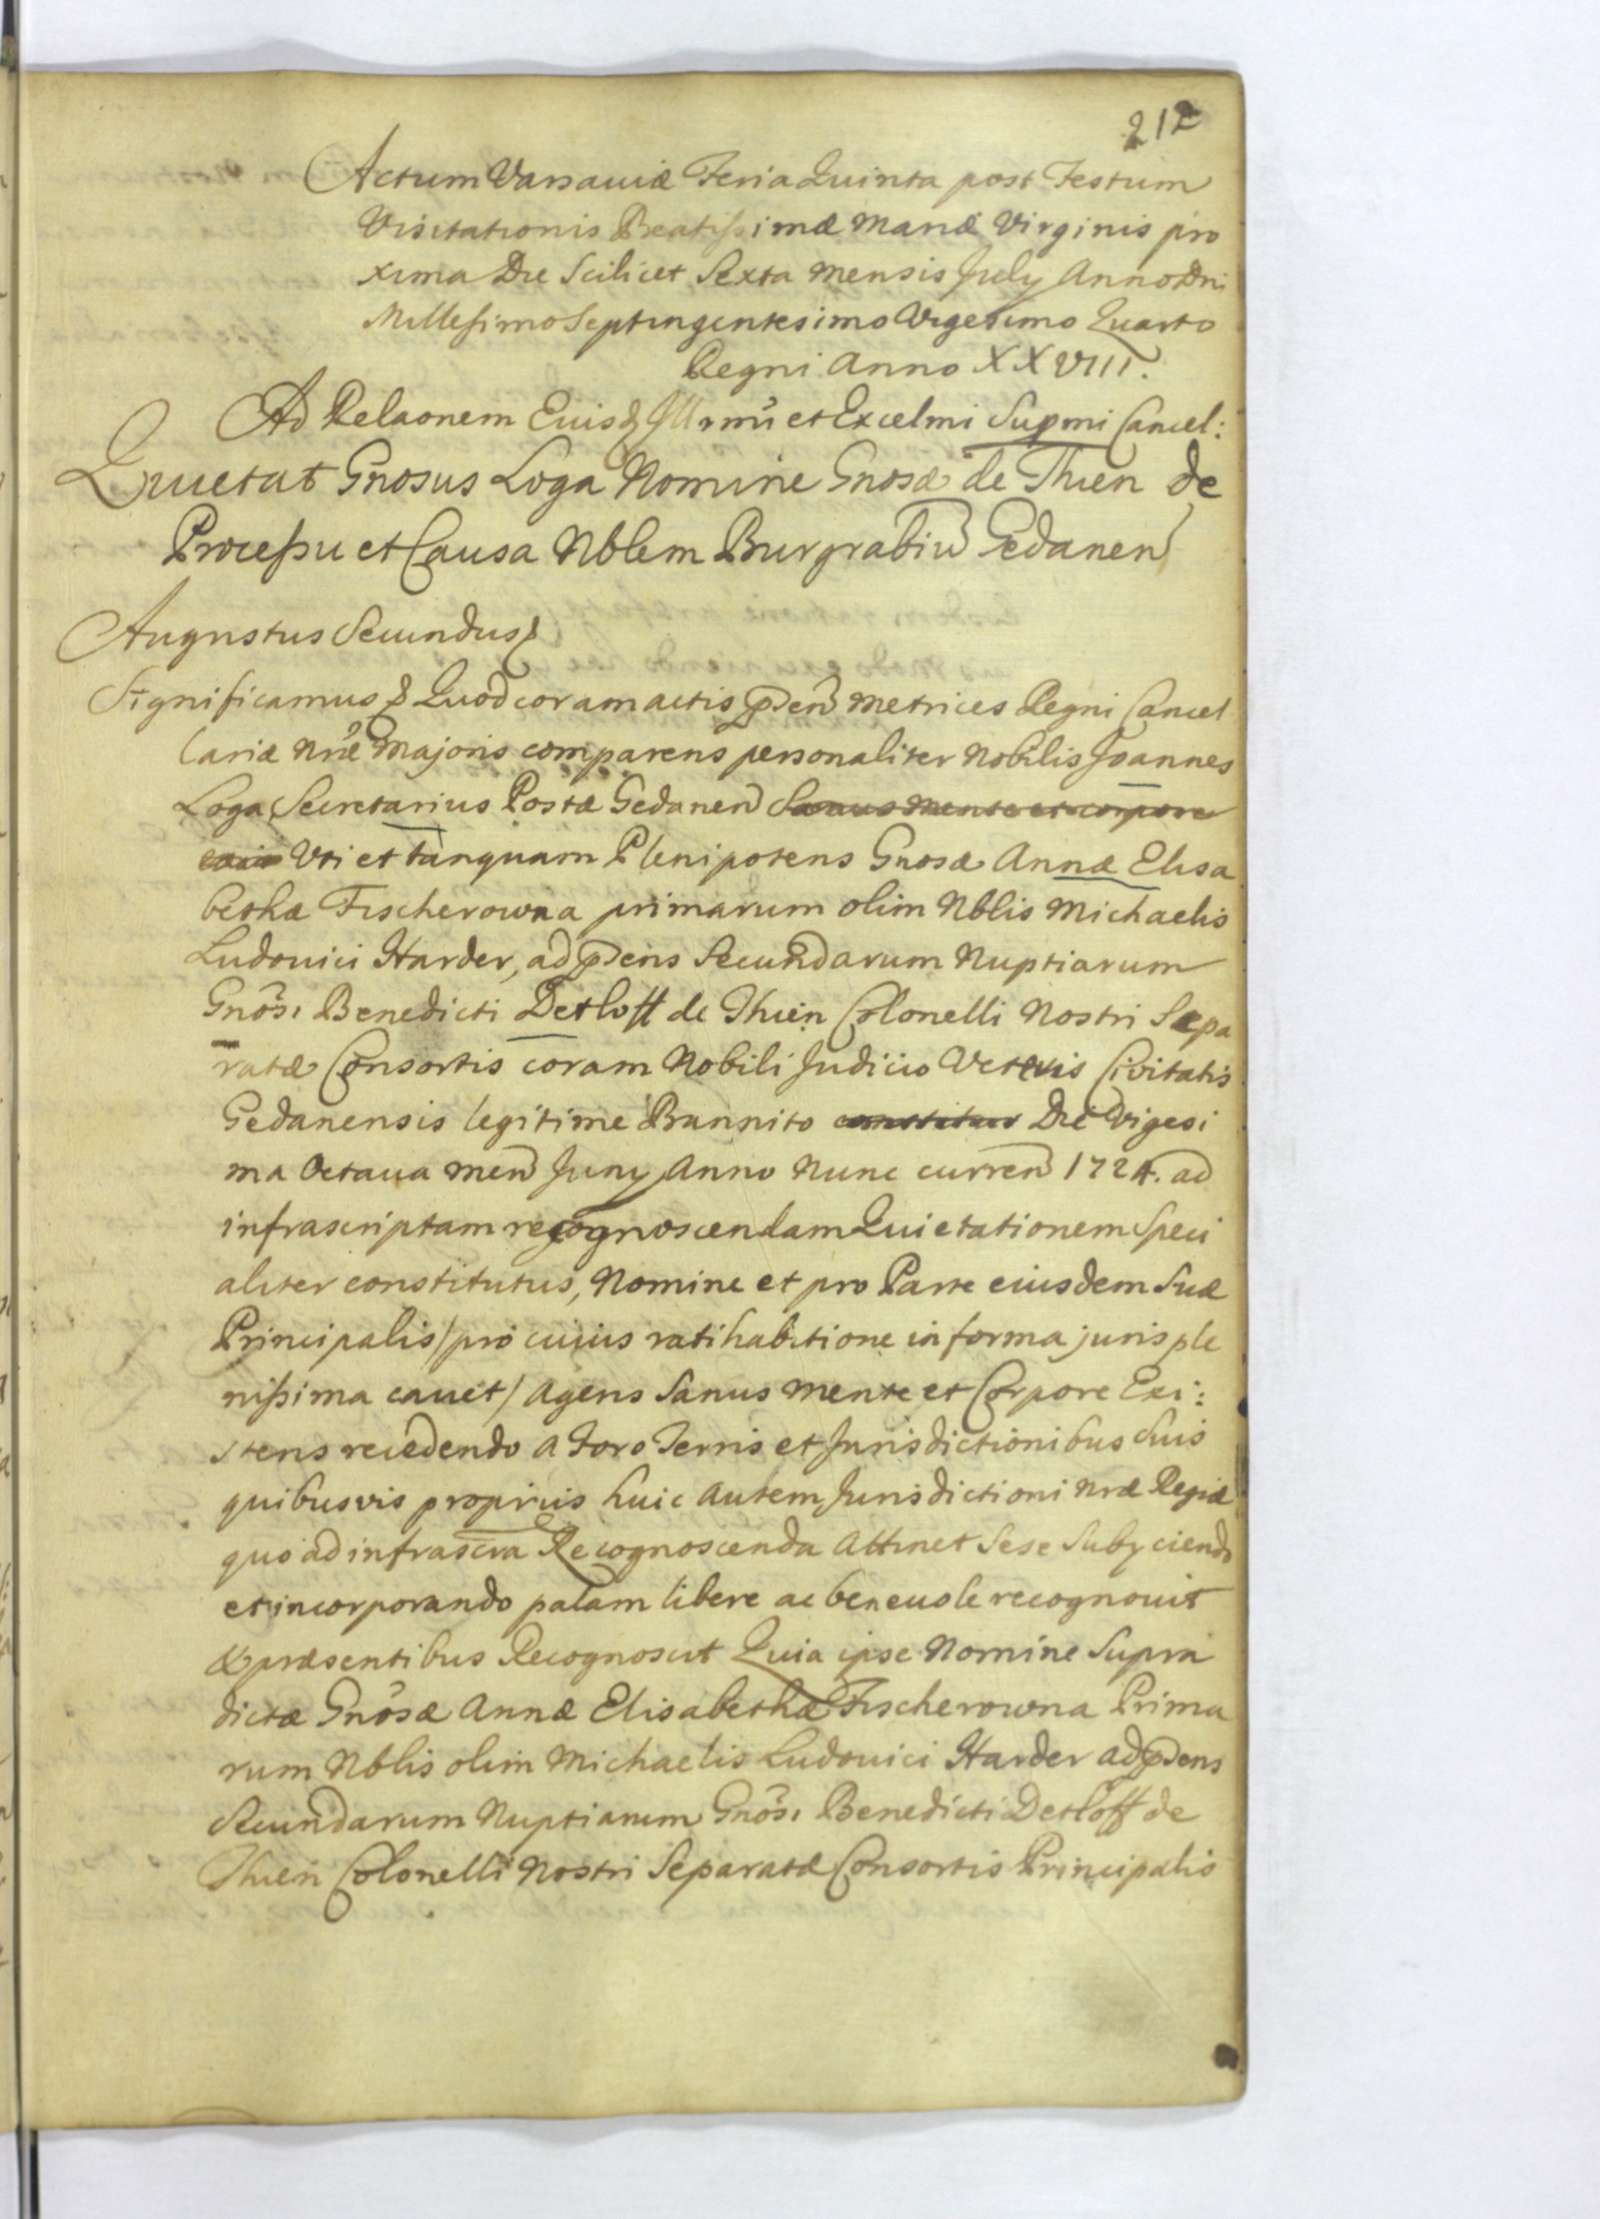 212
Actum Varsaviæ Feria Quinta post Festum
Visitationis Beatissimæ Mariæ Virginis pro
xima Die Scilicet Sexta Mensis July Anno Dni
Millesimo Septingentesimo Vigesimo Quarto
Regni Anno XXVIII.
Ad Relaonem Eiusd Illrmi et Excelmi Supmi Cancel:
Quietat Gnosus Loga Nomine Gnosæ de Thien de
Processu et Causa Nblem Burgrabiu Gedanen
Augustus Secundus
Significamus Quod coram actis pden Metrices Regni Cancel
lariæ Nræ Majoris comparens personaliter Nobilis Joannes
Loga Secretarius Postæ Gedanen Sanus mente et corpore
Uti et tanquam Plenipotens Gnosæ Annæ Elisa
bethæ Fischerowna primarum olim Nblis Michaelis
Ludovici Harder, ad pdens Secundarum Nuptiarum
Gnosi Benedicti Detloff de Thien Colonelli Nostri Sepa
ratæ Consortis coram Nobili Judicio Veteris Civitatis
Gedanensis legitime Bannito constitus Die Vigesi
ma Octava men Juny Anno Nunc curren 1724. ad
infrascriptam recognoscendam Quietationem Speci
aliter constitutus, Nomine et pro Parte eiusdem Suæ
Principalis /pro cuius ratihabitione in forma juris ple
nissima cavet/ Agens Sanus Mente et Corpore Exi:
stens recedendo a Foro Terris et Jurisdictionibus Suis
quibusvis propriis huic Autem Jurisdictioni Nræ Regiæ
quo ad infrascra Recognoscenda Attinet Sese Subyciendo
et incorporando palam libere ac benevole recognovit
& præsentibus Recognoscit Quia ipse Nomine Supra
dictæ Gnosæ Annæ Elisabethæ Fischerowna Prima
rum Nblis olim Michaelis Ludovici Harder ad pdens
Secundarum Nuptiarum Gnosi Benedicti Detloff de
Thien Colonelli Nostri Separatæ Consortis Principalis